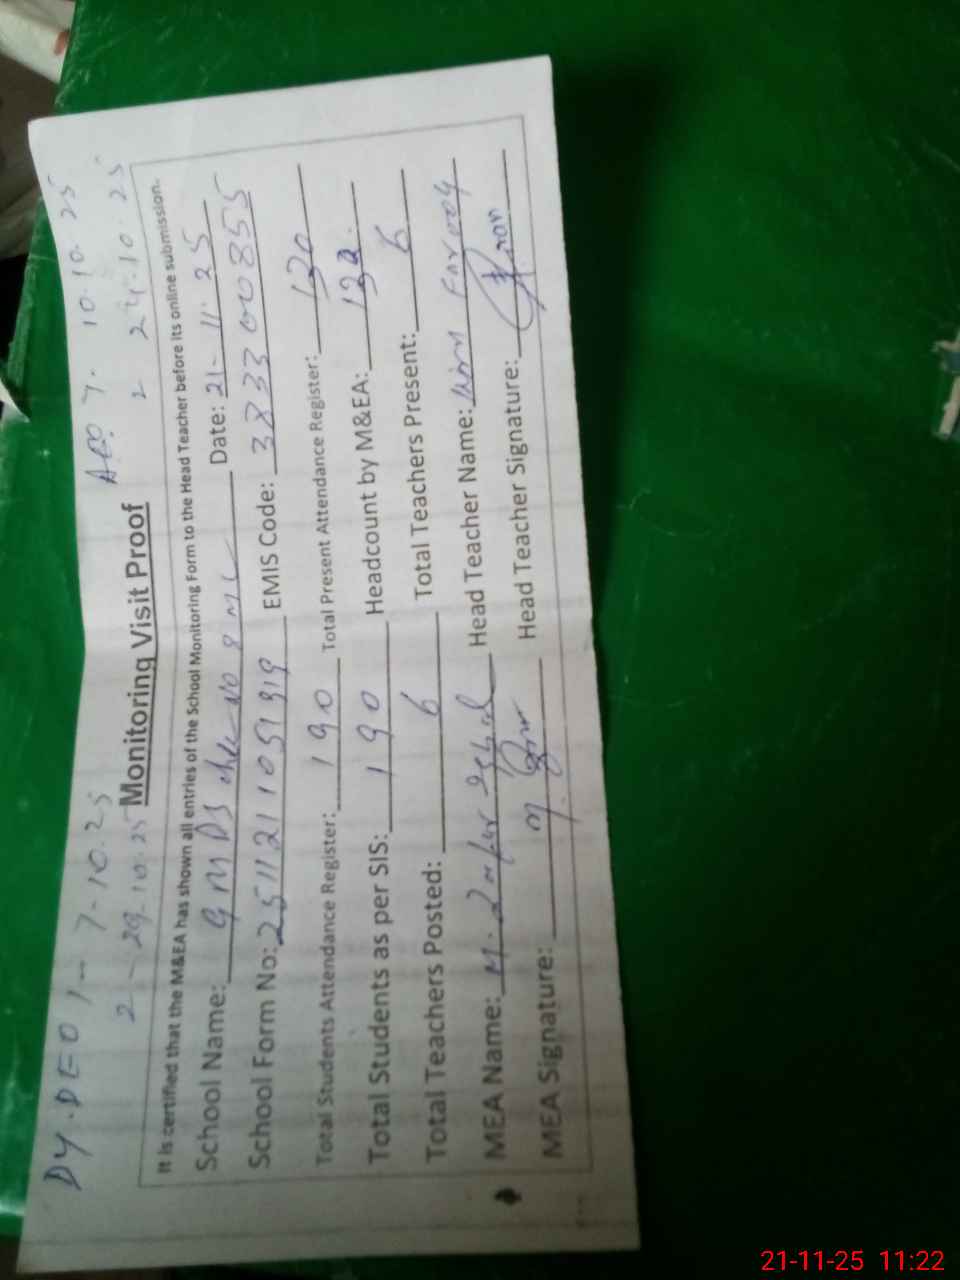 DY.DEO 1- 7-10.25 AEO 7. 10.10.25
2- 29-10.25 2 24.10.25
Monitoring Visit Proof
It is certified that the M&EA has shown all entries of the School Monitoring Form to the Head Teacher before its online submission.
School Name: GMPS No 8 ML Date: 21-11.25
School Form No: 251121 1051919 EMIS Code: 383300855
Total Students Attendance Register: 190 Total Present Attendance Register: 130
Total Students as per SIS: 190 Headcount by M&EA: 132.
Total Teachers Posted: 6 Total Teachers Present: 6
MEA Name: M. Zafar Iqbal Head Teacher Name: Farooq
MEA Signature: Head Teacher Signature:
21-11-25 11:22